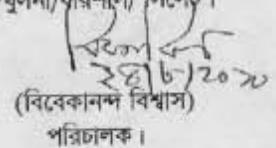 খুলনা/বরিশাল/সিলেট।
২৪/৮/২০২০
(বিবেকানন্দ বিশ্বাস)
পরিচালক।